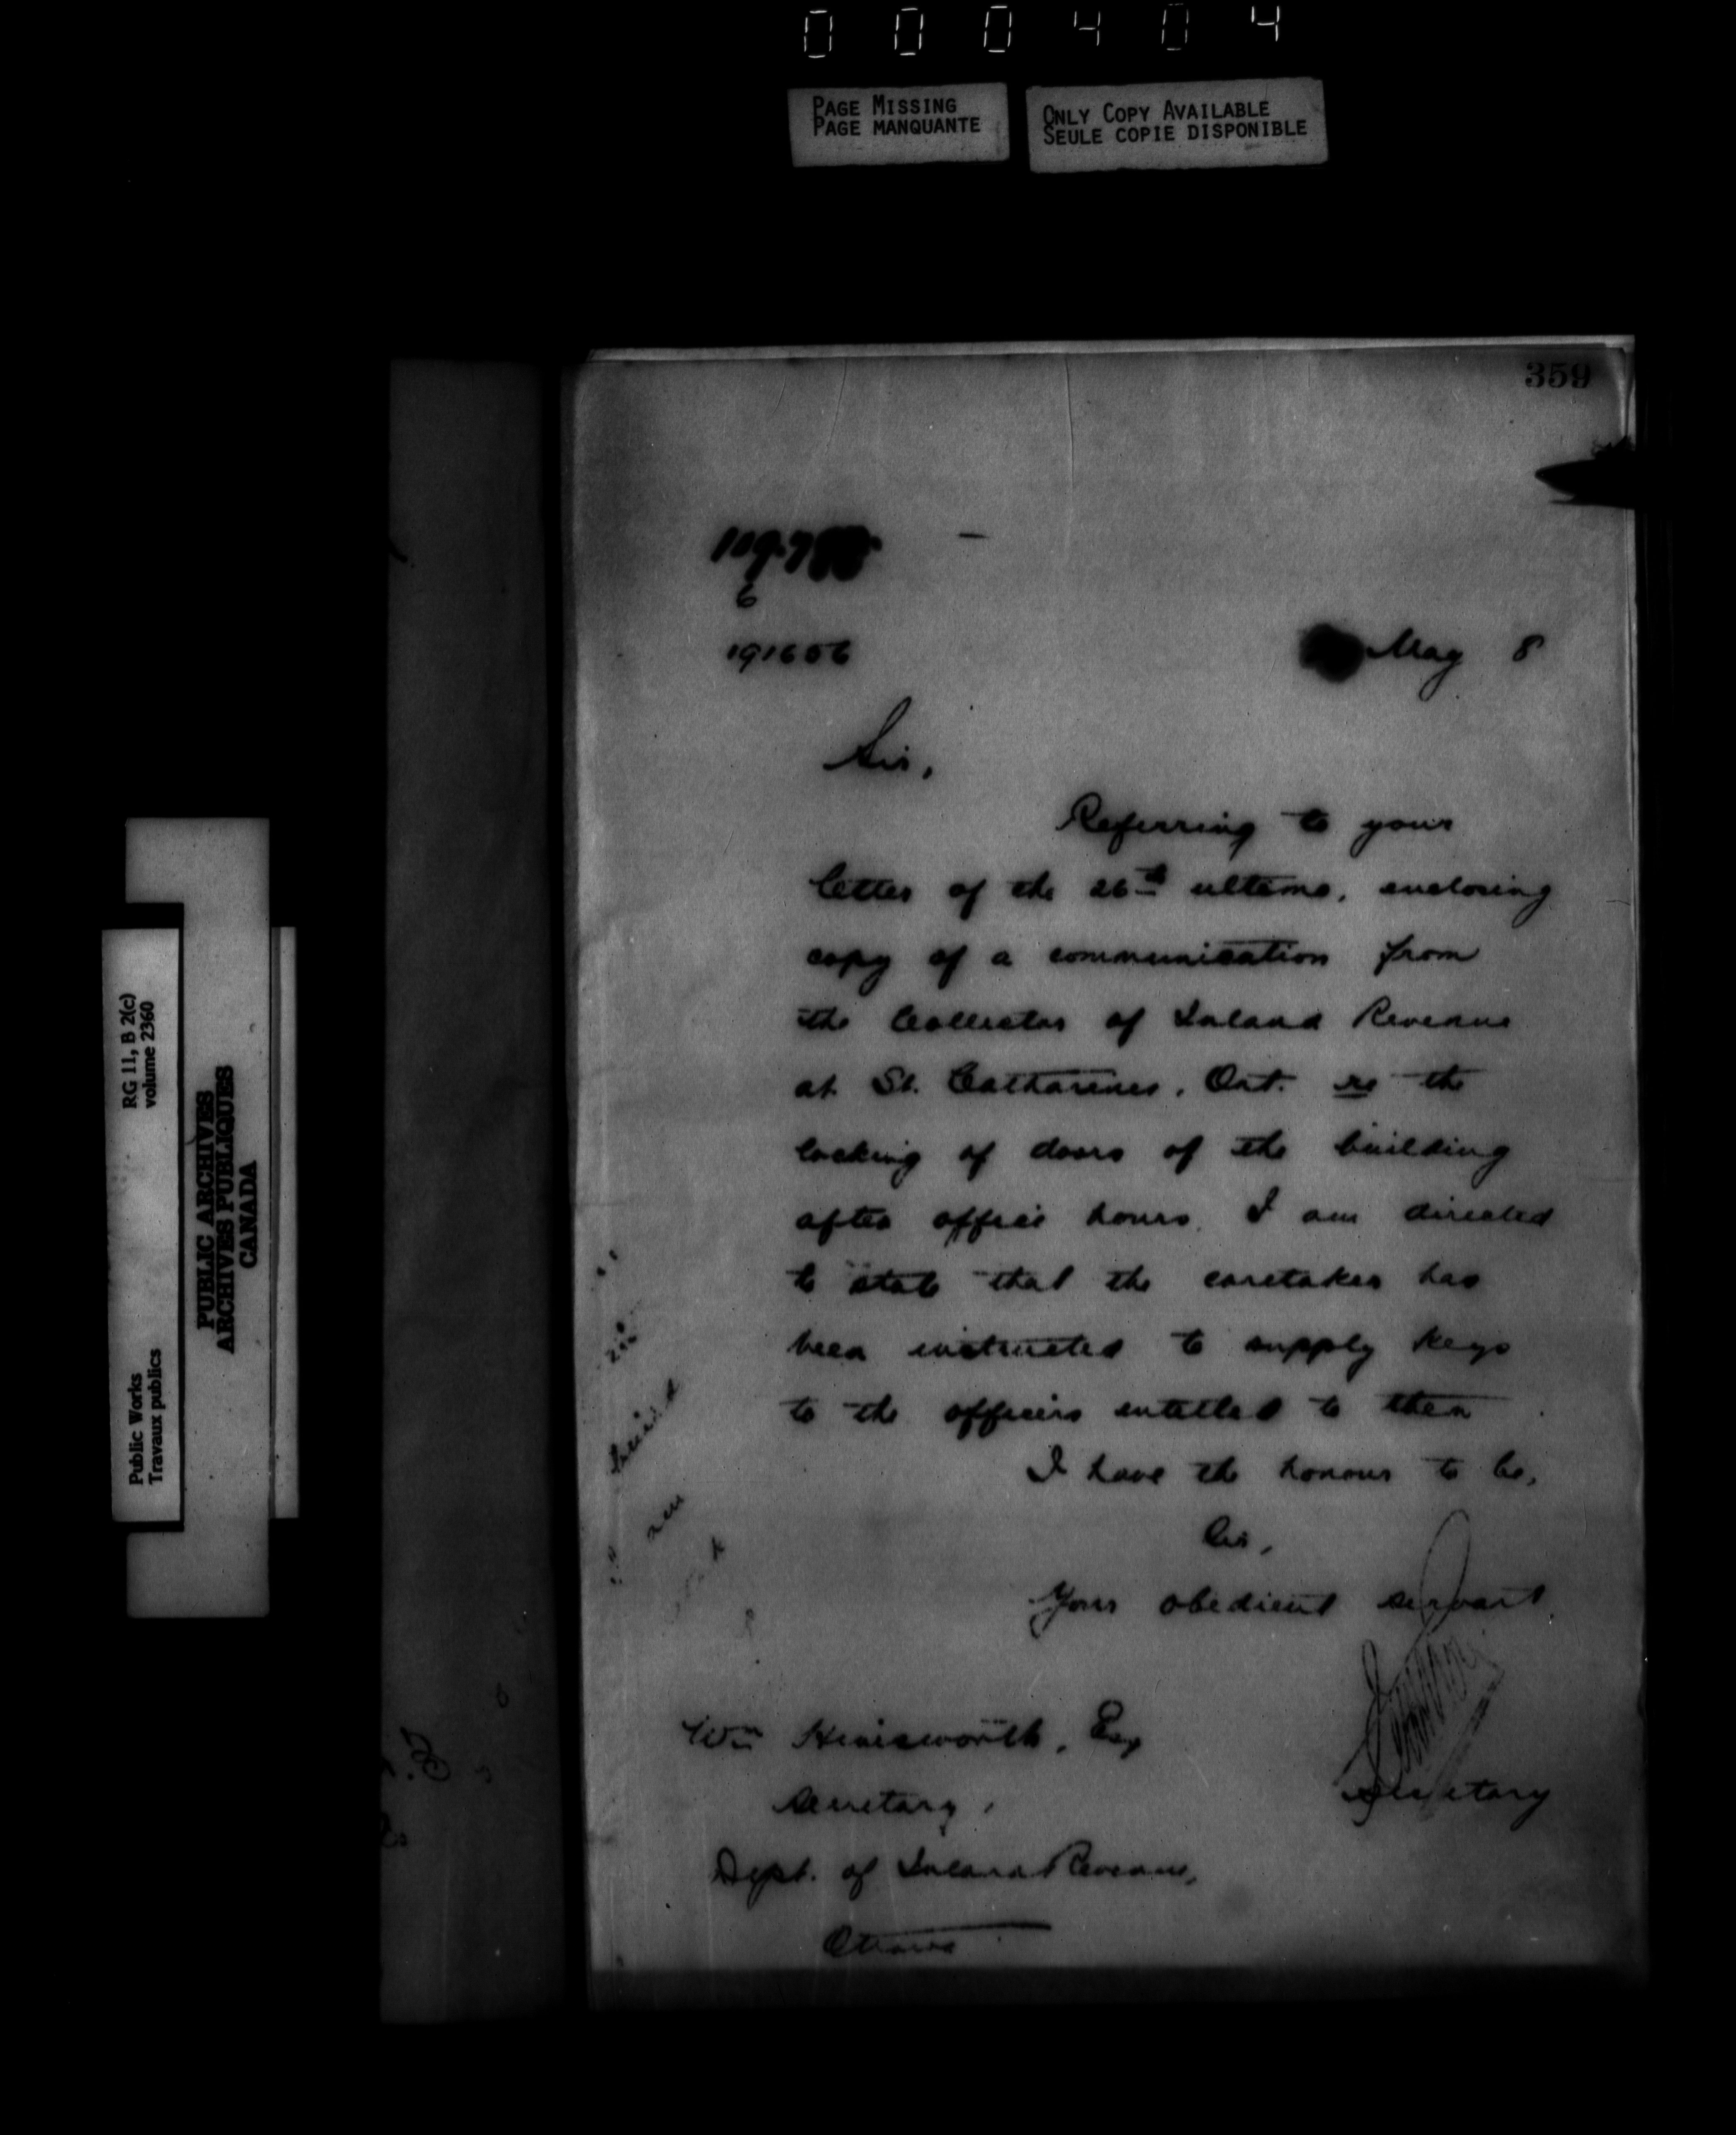 000404
PAGE MISSING
PAGE MANQUANTE
ONLY COPY AVAILABLE
SEULE COPIE DISPONIBLE
359
6
191606
May 8
Sir,
Referring to your
letter of the 26th ultimo, enclosing
copy of a communication from
the Collector of Inland Revenue
at St. Catharines, Ont. re the
locking of doors of the building
after office hours, I am directed
to state that the caretaker has
been instructed to supply keys
to the officers entitled to them
I have the honour to be,
Sir,
Your obedient servant
Secretary
Wm Himsworth, Esq
Secretary,
Dept. of Inland Revenue,
Ottawa
RG 11, B 2(c)
volume 2360
Public Works
Travaux publics
PUBLIC ARCHIVES
ARCHIVES PUBLIQUES
CANADA